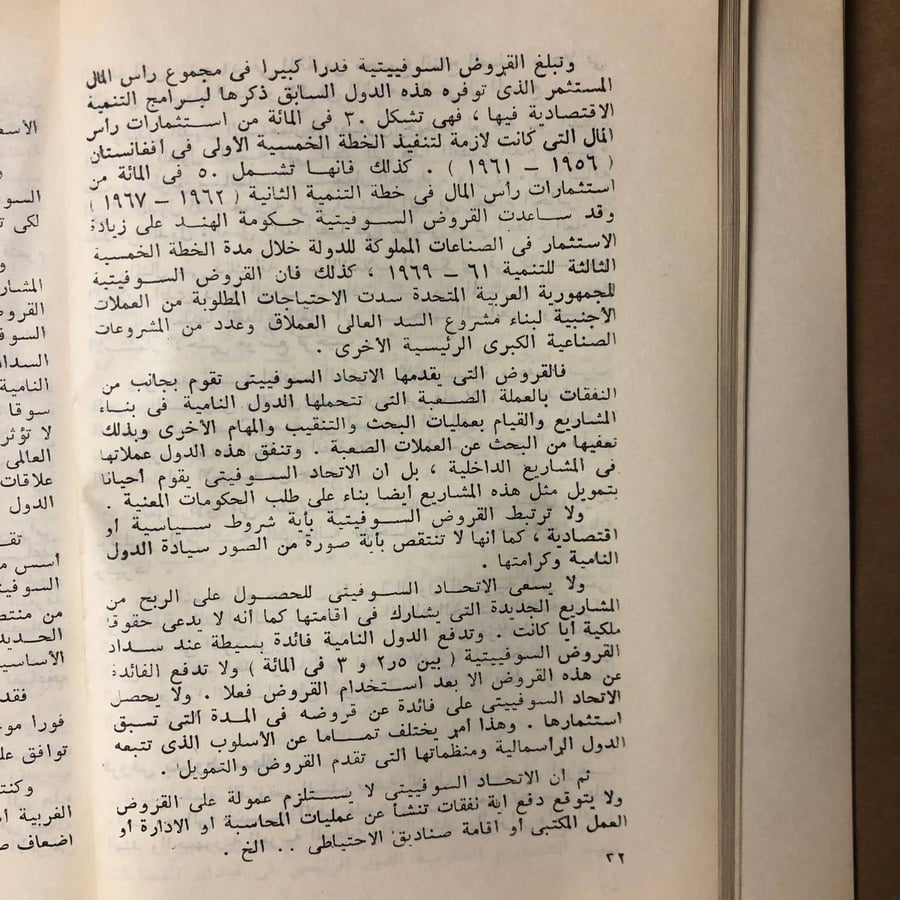 وتبلغ القروض السوفييتية قدرا كبيرا فى مجموع رأس المال
المستثمر الذى توفره هذه الدول السابق ذكرها لبرامج التنمية
الاقتصادية فيها ، فهى تشكل ٣٠ فى المائة من استثمارات رأس
المال التى كانت لازمة لتنفيذ الخطة الخمسية الأولى فى أفغانستان
( ١٩٥٦ – ١٩٦١ ) . كذلك فانها تشمل ٥٠ فى المائة من
استثمارات رأس المال فى خطة التنمية الثانية ( ١٩٦٢ – ١٩٦٧ )
وقد ساعدت القروض السوفيتية حكومة الهند على زيادة
الاستثمار فى الصناعات المملوكة للدولة خلال مدة الخطة الخمسية
الثالثة للتنمية ٦١ – ١٩٦٩ ، كذلك فان القروض السوفيتية
للجمهورية العربية المتحدة سدت الاحتياجات المطلوبة من العملات
الأجنبية لبناء مشروع السد العالى العملاق وعدد من المشروعات
الصناعية الكبرى الرئيسية الأخرى .
فالقروض التى يقدمها الاتحاد السوفييتى تقوم بجانب من
النفقات بالعملة الصعبة التى تتحملها الدول النامية فى بناء
المشاريع والقيام بعمليات البحث والتنقيب والمهام الأخرى وبذلك
تعفيها من البحث عن العملات الصعبة . وتنفق هذه الدول عملاتها
فى المشاريع الداخلية ، بل ان الاتحاد السوفيتى يقوم أحيانا
بتمويل مثل هذه المشاريع أيضا بناء على طلب الحكومات المعنية .
ولا ترتبط القروض السوفيتية بأية شروط سياسية أو
اقتصادية ، كما أنها لا تنتقص بأية صورة من الصور سيادة الدول
النامية وكرامتها .
ولا يسعى الاتحاد السوفييتى للحصول على الربح من
المشاريع الجديدة التى يشارك فى اقامتها كما أنه لا يدعى حقوق
ملكية أيا كانت . وتدفع الدول النامية فائدة بسيطة عند سداد
القروض السوفييتية ( بين ٢٫٥ و ٣ فى المائة ) ولا تدفع الفائدة
عن هذه القروض الا بعد استخدام القروض فعلا . ولا يحصل
الاتحاد السوفييتى على فائدة عن قروضه فى المدة التى تسبق
استثمارها . وهذا أمر يختلف تماما عن الأسلوب الذى تتبعه
الدول الرأسمالية ومنظماتها التى تقدم القروض والتمويل .
ثم ان الاتحاد السوفييتى لا يستلزم عمولة على القروض
ولا يتوقع دفع اية نفقات تنشأ عن عمليات المحاسبة او الادارة أو
العمل المكتبى أو اقامة صناديق الاحتياطى .. الخ .
٢٢